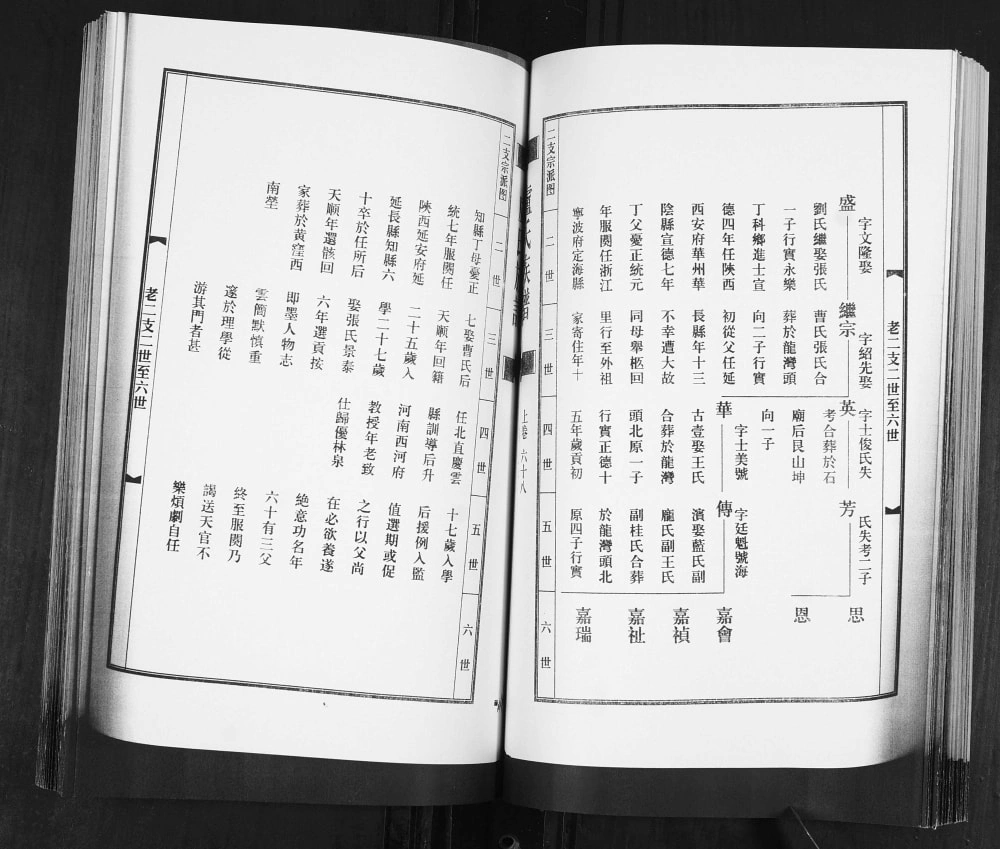 老二支二世至六世
盛
字文隆娶
劉氏繼娶張氏
一子行實永樂
丁科鄉進士宣
德四年任陝西
西安府華州華
陰縣宣德七年
丁父憂正統元
年服闋任浙江
寧波府定海縣
繼宗
字紹先娶
曹氏張氏合
葬於龍灣頭
向二子行實
初從父任延
長縣年十三
不幸遭大故
同母舉柩回
里行至外祖
家寄住年十
英
字士俊氏失
考合葬於石
廟后艮山坤
向一子
華
字士美號
古壹娶王氏
合葬於龍灣
頭北原一子
行實正德十
五年歲貢初
芳
氏失考二子
傳
字廷魁號海
濱娶藍氏副
龐氏副王氏
副桂氏合葬
於龍灣頭北
原四子行實
思
恩
嘉會
嘉禎
嘉祉
嘉瑞
二支宗派图 二世 三世 四世 五世 六世
上卷 六十八
二支宗派图 二世 三世 四世 五世 六世
知縣丁母憂正
統七年服闋任
陝西延安府延
延長縣知縣六
十卒於任所后
天順年還骸回
家葬於黃窪西
南塋
七娶曹氏后
天順年回籍
二十五歲入
學二十七歲
娶張氏景泰
六年選貢按
即墨人物志
雲簡默慎重
邃於理學從
游其門者甚
任北直慶雲
縣訓導后升
河南西河府
教授年老致
仕歸優林泉
十七歲入學
后援例入監
值選期或促
之行以父尚
在必欲養遂
絶意功名年
六十有三父
終至服闋乃
謁送天官不
樂煩劇自任
老二支二世至六世